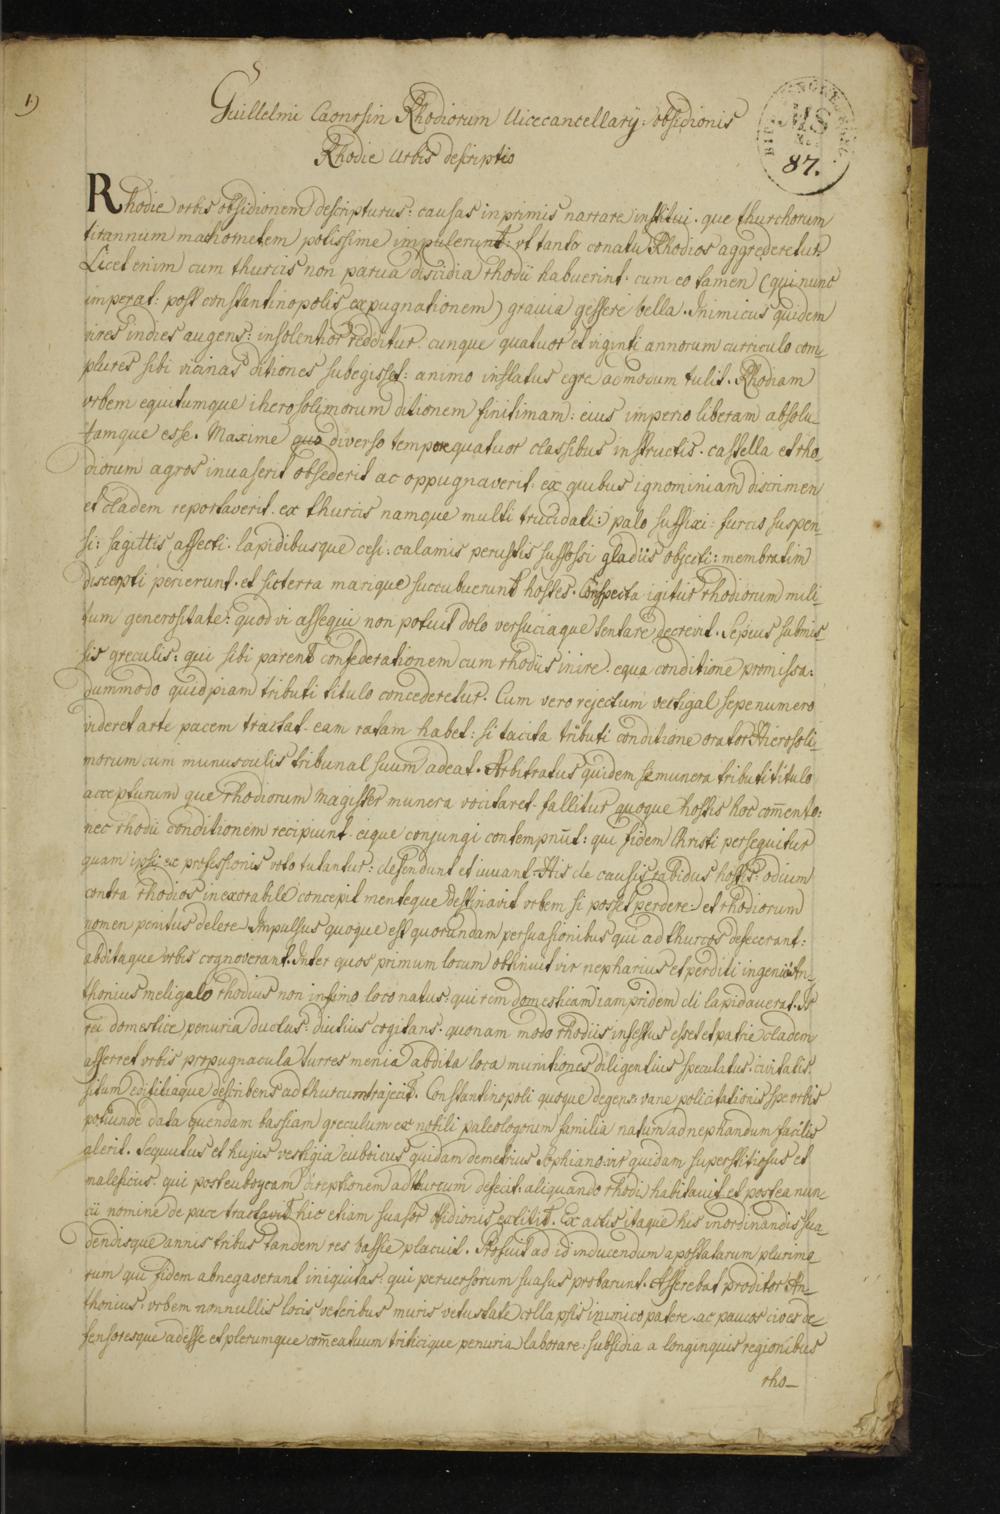 1)
Guillelmi Caonrsin Rhodiorum Uicecancellarij: obsidionis
Rhodie urbis descriptio
MS
87.
Rhodie vrbis obsidionem descripturus: causas inprimis narrare institui. que thurchorum
tirannum machometem potissime impulerunt: vt tanto conatu Rhodios aggrederetur.
Licet enim cum thurcis non parua discidia rhodii habuerint. cum eo tamen (qui nunc
imperat: post constantinopolis expugnationem) grauia gessere bella. Inimicus quidem
vires indies augens: insolentior redditur. cunque quatuor et viginti annorum curriculo com=
plures sibi vicinas ditiones subegisset: animo inflatus egre ac modum tulit. Rhodiam
vrbem equitumque iherosolimorum ditionem finitimam: eius imperio liberam absolu=
tamque esse. Maxime quo diverso tempore quatuor classibus instructis. castella et rho=
diorum agros inuaserit obsederit ac oppugnaverit. ex quibus ignominiam discrimen
et cladem reportaverit. ex thurcis namque multi trucidati: palo suffixi: furcis suspen=
si: sagittis affecti. lapidibusque cesi: calamis perustis suffossi gladiis obiecti: membratim
discerpti perierunt. et sic terra marique succubuerunt hostes. Conspecta igitur rhodiorum mili=
tum generositate: quod vi assequi non potuit dolo versuciaque tentare decrevit. Sepius submis=
sis greculis: qui sibi parent confederationem cum rhodiis inire. equa conditione promissa:
dummodo quidpiam tributi titulo concederetur. Cum vero rejectum vectigal sepenumero
videret arte pacem tractat. eam ratam habet: si tacita tributi conditione orator Hierosoli=
morum cum munusculis tribunal suum adeat. Arbitratus quidem se munera tributi titulo
accepturum que rhodiorum magister munera vocitaret. fallitur quoque hostis hoc com̄ento:
nec rhodii conditionem recipiunt. eique conjungi contempnūt: qui fidem Christi persequitur
quam ipsi ex professionis voto tutantur: defendunt et iuuant. His de causis rabidus hostis: odium
contra rhodios inexorabile concepit menteque destinavit vrbem si posset perdere: et rhodiorum
nomen penitus delere. Impulsus quoque est quorundam persuasionibus qui ad thurcos defecerant:
abditaque vrbis cognoverant. Inter quos primum locum obtinuit vir nepharius et perditi ingenii An=
thonius meligalo rhodius non infimo loco natus. qui rem domesticam iam pridem di lapidauerat. Is
rei domestice penuria ductus: diutius cogitans. quonam modo rhodiis infestus esset et patrie cladem
afferret vrbis propugnacula turres menia abdita loca munitiones diligentius speculatus. civitatis
situm edititiaque describens ad thurcum trajecit. Constantinopoli quoque degens: vane policitationis spe vrbis
potiunde data quendam bassiam greculum ex nobili paleologorum familia natum ad nephandum facilis
alerit. Sequutus et hujus vestigia euboicus quidam demetrius Sophiano: vir quidam superstitiosus et
maleficus: qui post euboycam direptionem ad thurcum defecit. aliquando rhodi habitauit et postea nun=
cii nomine de pace tractavit hic etiam suasor obsidionis extitit. Ex actis itaque his inordinandis sua=
dendisque annis tribus tandem res bassie placuit. Profuit ad id inducendum apostatarum plurimo
rum qui fidem abnegaverant iniquitas. qui peruersorum suasus probarunt. Asserebat proditor An=
thonius. vrbem nonnullis locis veteribus muris vetustate collapsis inimico patere. ac paucos cives de=
fensoresque adesse et plerumque com̄eatuum triticique penuria laborare: subsidia a longinquis regionibus
rho=